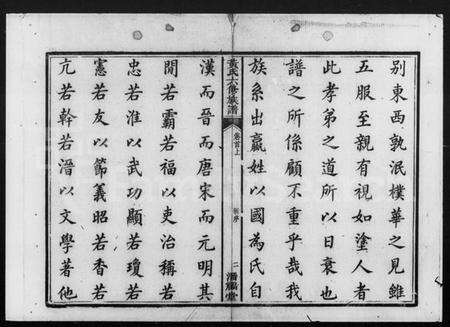 别東西孰泯樸華之見雖
五服至親有視如塗人者
此孝弟之道所以日衰也
譜之所係顧不重乎哉我
族系出嬴姓以國為氏自
黃氏六修族譜
卷首上
二
漢而晉而唐宋而元明其
間若霸若福以吏治稱若
忠若淮以武功顯若瓊若
憲若友以節義昭若香若
亢若幹若溍以文學著他